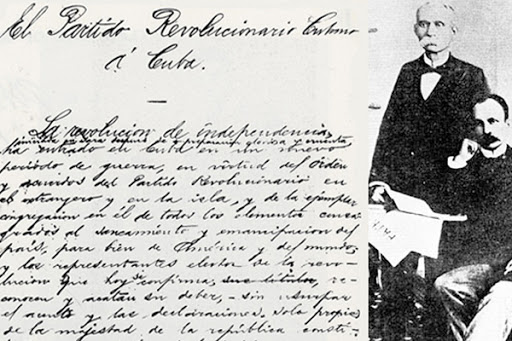 El Partido Revolucionario Cubano
á Cuba.
La revolucion de independencia,
iniciada en Yara despues de preparacion gloriosa y cruenta,
ha entrado en Cuba en un nuevo
periodo de guerra, en virtud del orden
y acuerdos del Partido Revolucionario en
el extranjero y en la isla, y de la ejemplar
congregacion en él de todos los elementos consa-
grados al saneamiento y emancipacion del
país, para bien de América y del mundo;
y los representantes electos de la revo-
lucion que hoy se confirma, re-
conocen y acatan su deber, – sin usurpar
el acento y las declaraciones solo propias
de la majestad de la república consti-